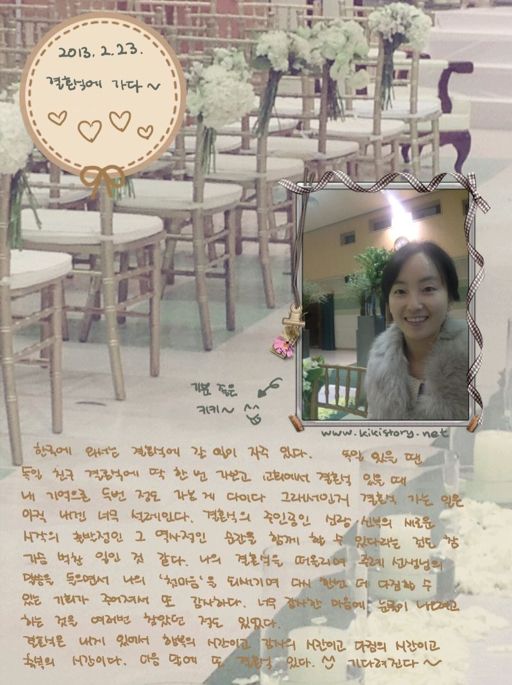 2013. 2. 23.
결혼식에 가다~
기분 좋은
키키~
www.kikistory.net
한국에 와서는 결혼식에 갈 일이 자주 있다. 독일 있을 땐
독일 친구 결혼식에 딱 한 번 가보고 교회에서 결혼식 있을 때
내 기억으로 두번 정도 가본 게 다이다. 그래서인지 결혼식 가는 일은
아직 내겐 너무 설레인다. 결혼식의 주인공인 신랑 신부의 새로운
시작의 출발점인 그 역사적인 순간을 함께 할 수 있다라는 것도 참
가슴 벅찬 일인 것 같다. 나의 결혼식을 떠올리며 주례 선생님의
말씀을 들으면서 나의 '첫마음'을 되새기며 다시 한번 더 다짐할 수
있는 기회가 주어져서 또 감사하다. 너무 감사한 마음에 눈물이 나려고
하는 것을 여러번 참았던 적도 있었다.
결혼식은 내게 있어서 행복의 시간이고 감사의 시간이고 다짐의 시간이고
축복의 시간이다. 다음 달에 또 결혼식 있다. 기다려진다~